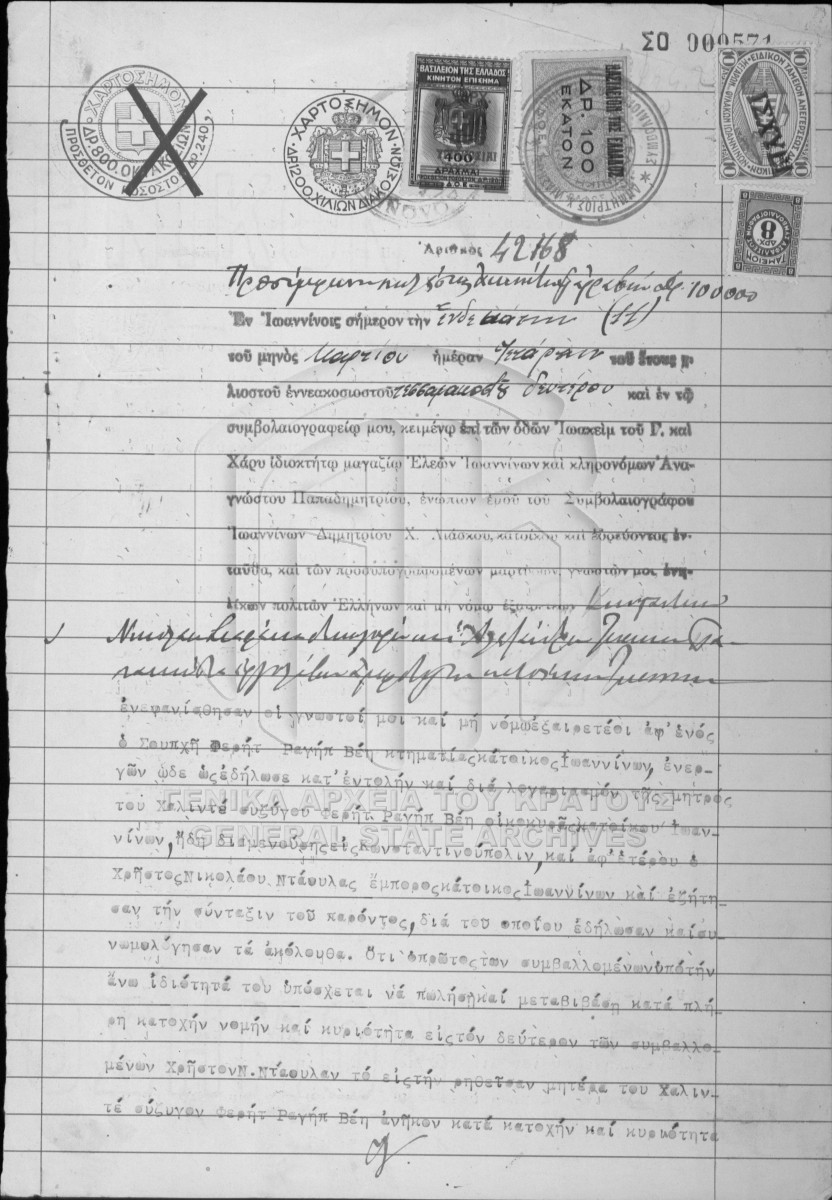 ΣΟ 000571
ΧΑΡΤΟΣΗΜΟΝ
ΔΡ.800.ΟΚΤΑΚΟΣΙΩΝ
ΠΡΟΣΘΕΤΟΝ ΠΟΣΟΣΤΟΝ ΔΡ.240
ΧΑΡΤΟΣΗΜΟΝ
ΔΡ.1200 ΧΙΛΙΩΝ ΔΙΑΚΟΣΙΩΝ
ΒΑΣΙΛΕΙΟΝ ΤΗΣ ΕΛΛΑΔΟΣ
ΚΙΝΗΤΟΝ ΕΠΙΣΗΜΑ
400
ΔΡΑΧΜΑΙ
ΒΑΣΙΛΕΙΟΝ ΤΗΣ ΕΛΛΑΔΟΣ
ΔΡ. 100
ΕΚΑΤΟΝ
ΙΣΧΥΕΙ
10
ΤΑΜΕΙΟΝ
8
ΔΡΧ.
Ἀριθμὸς 42168
Ἐν Ἰωαννίνοις σήμερον τὴν ἑνδεκάτην (11)
τοῦ μηνὸς Μαρτίου ἡμέραν Τετάρτην τοῦ ἔτους χι-
λιοστοῦ ἐννεακοσιοστοῦ τεσσαρακοστοῦ δευτέρου καὶ ἐν τῷ
συμβολαιογραφείῳ μου, κειμένῳ ἐπὶ τῶν ὁδῶν Ἰωακεὶμ τοῦ Γ. καὶ
Χάρυ ἰδιοκτήτῳ μαγαζίῳ Ἐλεῶν Ἰωαννίνων καὶ κληρονόμων Ἀνα-
γνώστου Παπαδημητρίου, ἐνώπιον ἐμοῦ τοῦ Συμβολαιογράφου
Ἰωαννίνων Δημητρίου Χ. Λιάσκου, κατοίκου καὶ ἑδρεύοντος ἐν-
ταῦθα, καὶ τῶν προσυπογραφομένων μαρτύρων, γνωστῶν μοι, ἐνη-
λίκων πολιτῶν Ἑλλήνων καὶ μὴ νόμῳ ἐξαιρετέων
ἐνεφανίσθησαν οἱ γνωστοί μοι καί μή νόμωἐξαιρετέοι ἀφ'ἑνός
ὁ Σουπχῆ Φερήτ Ραγήπ Βέη κτηματίαςκάτοικοςἸωαννίνων, ἐνερ-
γῶν ὧδε ὡςἐδήλωσε κατ'ἐντολήν καί διά λογαριασμόν τῆςμητρός
του Χαλιντέ συζύγου Φερήτ Ραγήπ Βέη οἰκοκυρᾶςκατοίκου Ἰωαν-
νίνων, ἤδη διαμενούσηςεἰςΚωνσταντινούπολιν, καί ἀφ'ἑτέρου ὁ
ΧρῆστοςΝικολάου Ντάουλας ἔμποροςκάτοικοςἸωαννίνων καί ἐζήτη-
σαν τήν σύνταξιν τοῦ παρόντος, διά τοῦ ὁποίου ἐδήλωσαν καίσυ-
νωμολόγησαν τά ἀκόλουθα. Ὅτι ὁπρῶτοςτῶν συμβαλλομένωνὑπότήν
ἄνω ἰδιότητά του ὑπόσχεται νά πωλήσῃκαί μεταβιβάσῃ κατά πλή-
ρη κατοχήν νομήν καί κυριότητα εἰςτόν δεύτερον τῶν συμβαλλο-
μένων ΧρῆστονΝ.Ντάουλαν τό εἰςτήν ρηθεῖσαν μητέρα του Χαλιν-
τέ σύζυγον Φερήτ Ραγήπ Βέη ἀνῆκον κατά κατοχήν καί κυριότητα
ΓΕΝΙΚΑ ΑΡΧΕΙΑ ΤΟΥ ΚΡΑΤΟΥΣ
GENERAL STATE ARCHIVES